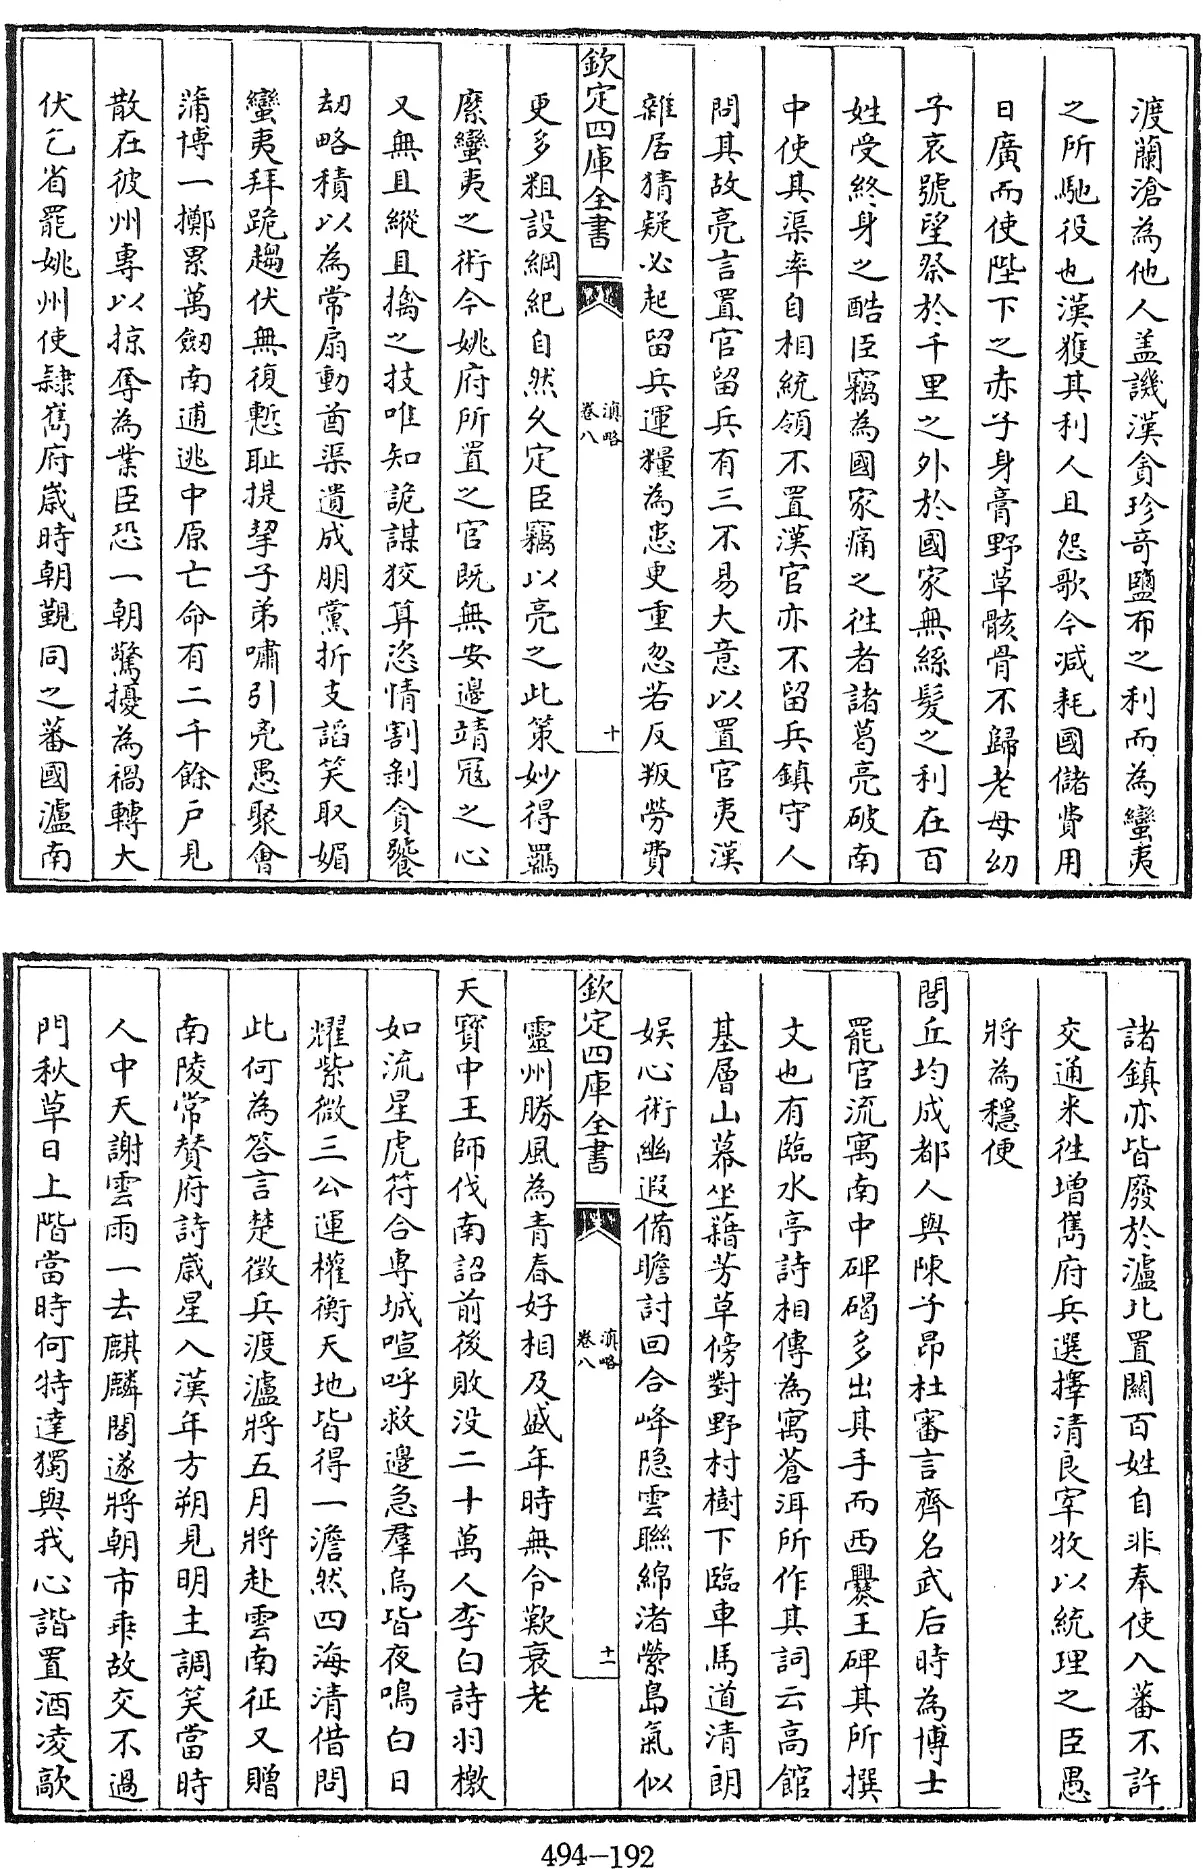 渡蘭滄為他人盖譏漢貪珍奇鹽布之利而為蠻夷
之所馳役也漢獲其利人且怨歌今減耗國儲費用
日廣而使陛下之赤子身膏野草骸骨不歸老母幼
子哀號望祭於千里之外於國家無絲髮之利在百
姓受終身之酷臣竊為國家痛之徃者諸葛亮破南
中使其渠率自相統領不置漢官亦不留兵鎮守人
問其故亮言置官留兵有三不易大意以置官夷漢
雜居猜疑必起留兵運糧為患更重忽若反叛勞費
欽定四庫全書
滇略
卷八
十
更多粗設綱紀自然久定臣竊以亮之此策妙得羈
縻蠻夷之術今姚府所置之官既無安邊靖冦之心
又無且縱且擒之技唯知詭謀狡算恣情割剝貪饕
刼略積以為常扇動酋渠遺成朋黨折支謟笑取媚
蠻夷拜跪趨伏無復慙耻提挈子弟嘯引兇愚聚會
蒲博一擲累萬劔南逋逃中原亡命有二千餘戶見
散在彼州專以掠奪為業臣恐一朝驚擾為禍轉大
伏乞省罷姚州使隷嶲府歲時朝覲同之蕃國瀘南
諸鎮亦皆廢於瀘北置關百姓自非奉使入蕃不許
交通來徃增嶲府兵選擇清良宰牧以統理之臣愚
將為穩便
閭丘均成都人與陳子昂杜審言齊名武后時為博士
罷官流寓南中碑碣多出其手而西爨王碑其所撰
文也有臨水亭詩相傳為寓蒼洱所作其詞云高館
基層山幕坐藉芳草傍對野村樹下臨車馬道清朗
娱心術幽遐備瞻討回合峰隠雲聯綿渚縈島氣似
欽定四庫全書
滇略
卷八
十一
靈州勝風為青春好相及盛年時無令歎衰老
天寶中王師伐南詔前後敗没二十萬人李白詩羽檄
如流星虎符合專城喧呼救邊急羣鳥皆夜鳴白日
耀紫微三公運權衡天地皆得一澹然四海清借問
此何為答言楚徴兵渡瀘將五月將赴雲南征又贈
南陵常贊府詩歲星入漢年方朔見明主調笑當時
人中天謝雲雨一去麒麟閣遂將朝市乖故交不過
門秋草日上階當時何特達獨與我心諧置酒凌歊
494-192